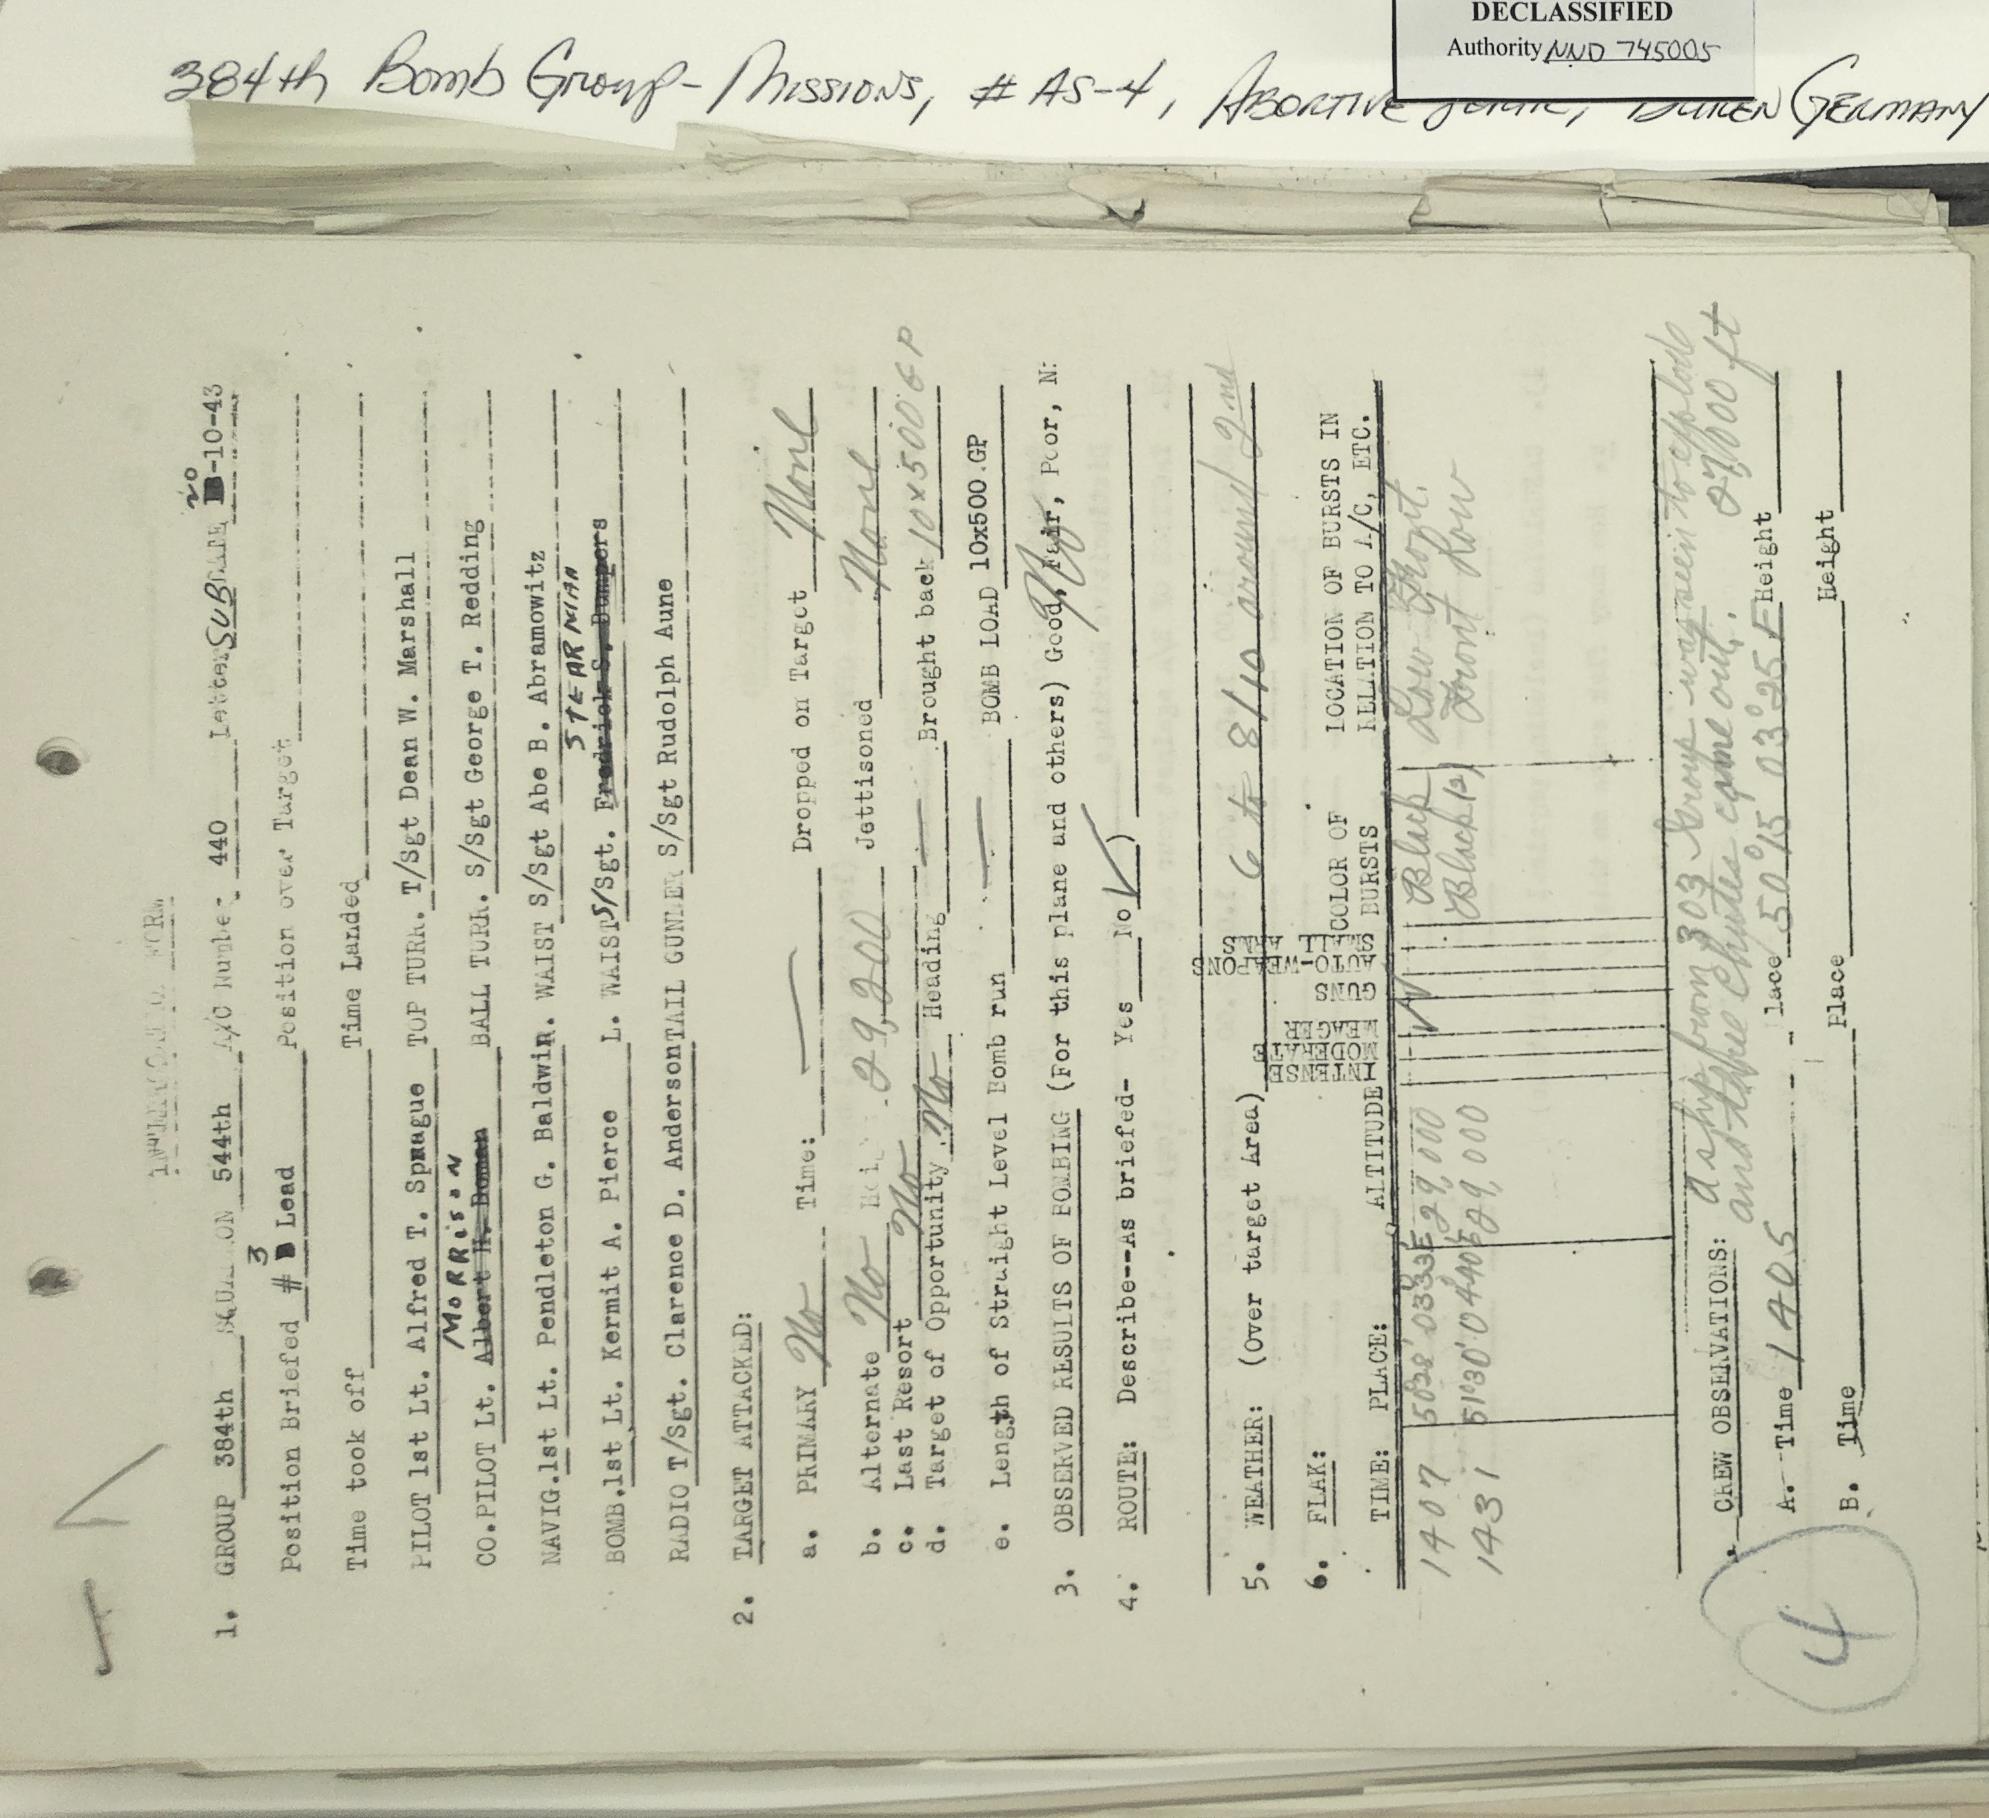 DECLASSIFIED
Authority NND 745005
384th Bomb Group - Missions, # AS-4, Abortive Germany
INTERROGATION FORM
1. GROUP 384th SQUADRON 544th A/C Number 440 Letter SUB 20-10-43
Position Briefed # 3 Lead Position over Target
Time took off Time Landed
PILOT 1st Lt. Alfred T. Sprague TOP TURR. T/Sgt Dean W. Marshall
MORRISON
CO.PILOT Lt. Albert H. Doman BALL TURR. S/Sgt George T. Redding
NAVIG. 1st Lt. Pendleton G. Baldwin R. WAIST S/Sgt Abe B. Abramowitz
STEARMAN
BOMB. 1st Lt. Kermit A. Pierce L. WAIST S/Sgt. Fredrick S. Dumpers
RADIO T/Sgt. Clarence D. Anderson TAIL GUNLER S/Sgt Rudolph Aune
2. TARGET ATTACKED:
a. PRIMARY No Time: — Dropped on Target None
b. Alternate No 29,200 Jettisoned None
c. Last Resort No Heading — Brought back 10x500 GP
d. Target of Opportunity No
e. Length of Straight Level Bomb run — BOMB LOAD 10x500.GP
3. OBSERVED RESULTS OF BOMBING (For this plane and others) Good, Fair, Poor, N:
4. ROUTE: Describe--As briefed- Yes No ✓)
5. WEATHER: (Over target Area) 6 to 8/10 around 2nd
6. FLAK:
TIME: PLACE: ALTITUDE INTENSE MODERATE MEAGER GUNS AUTO-WEAPONS SMALL ARMS COLOR OF BURSTS LOCATION OF BURSTS IN RELATION TO A/C, ETC.
1407 5028' 0333E 29,000 ✓ Black Low Front.
1431 51°30' 0440E 29,000 Black (2) Front Low
. CREW OBSERVATIONS: a ship from 303 Group was seen to explode
and three chutes came out. 27,000 ft
A. Time 1405 Place 50°15 03°25E Height
B. Time Place Height
4